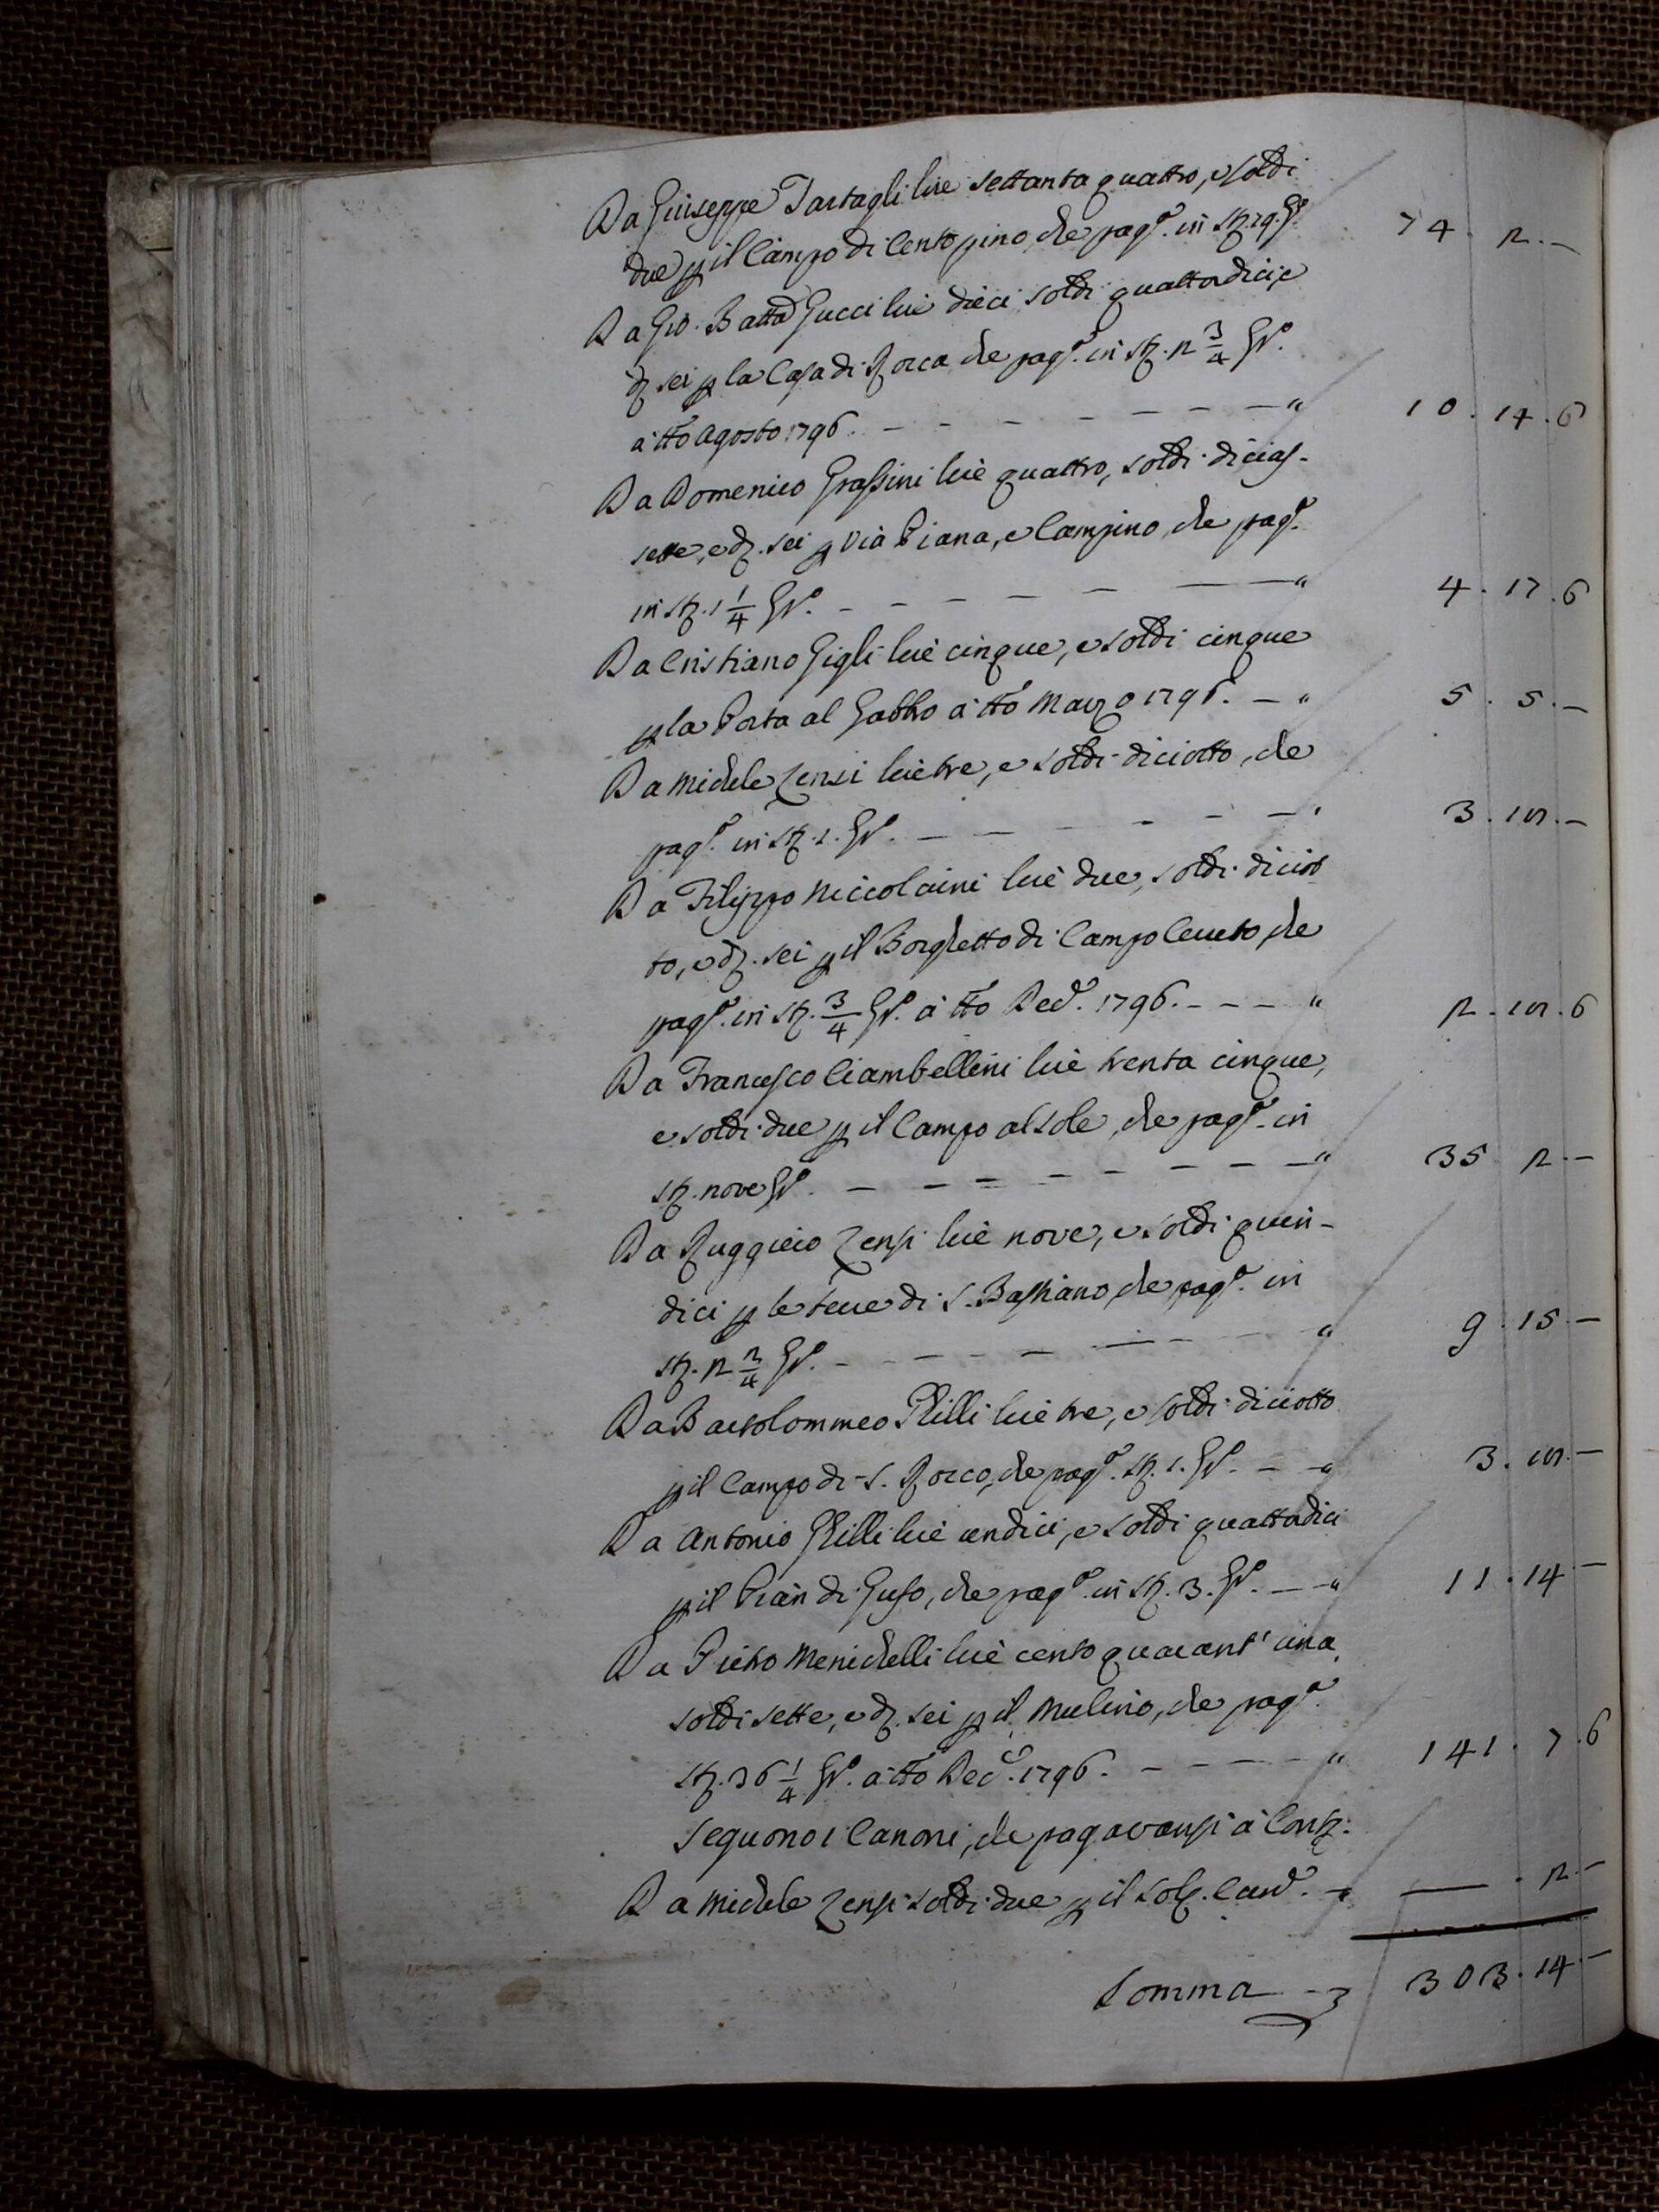 Da Giuseppe Tartagli lire settanta quattro, e soldi
due p il Campo di Cento pino, che pag.o in St. 19. G.o 74. 2. —
Da Gio. Batta Gucci lire dieci soldi quattordici, e
d. sei p la Casa di Rocca che pag.o in St. 2 3/4 G.o
a tto Agosto 1796. — — — — — — — " 10. 14. 6
Da Domenico Grassini lire quattro, soldi dicias-
sette, e d. sei p Via Piana, e Campino, che pag.o
in St. 1 1/4 G.o — — — — — — — " 4. 17. 6
Da Cristiano Gigli lire cinque, e soldi cinque
p la Porta al Gabbro a tto Marzo 1796. — " 5. 5. —
Da Michele Zensi lire tre, e soldi diciotto, che
pag.o in St. 1. G.o — — — — — — " 3. 18. —
Da Filippo Niccolaini lire due, soldi diciot
to, e d. sei p il Borghetto di Campo Ceceto, che
pag.o in St. 3/4 G.o a tto Xed. 1796. — — — " 2. 18. 6
Da Francesco Ciambellini lire trenta cinque,
e soldi due p il Campo al Sole, che pag.o in
St. nove G.o — — — — — — — — " 35 2. —
Da Ruggiero Zensi lire nove, e soldi quin-
dici p le terre di S. Bastiano, che pag.o in
St. 2 2/4 G.o — — — — — — — " 9. 15. —
Da Bartolommeo Ghilli lire tre, e soldi diciotto
p il Campo di S. Rocco, che pag.o St. 1. G.o — — " 3. 18. —
Da Antonio Ghilli lire undici, e soldi quattordici
p il Pian di Guso, che pag.o in St. 3. G.o — — " 11. 14 —
Da Pietro Menichelli lire cento quarant' una,
soldi sette, e d. sei p il Mulino, che pag.o
St. 36 1/4 G.o a tto Xed. 1796. — — — — " 141. 7. 6
Seguono i Canoni, che pagavansi a Cont.
Da Michele Zensi soldi due p il Sol. — " — . 2. —
Somma — 303. 14. —